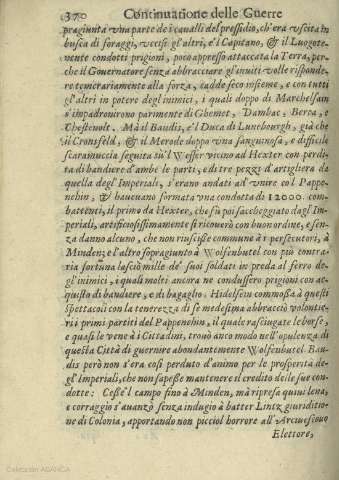 370 Continuatione delle Guerre
pragiunta vna parte de i caualli del pressidio, ch'era vscita in
busca di foraggi, vecise gl'altri, e'l Capitano, & il Luogote-
nente condotti prigioni, poco appresso attaccata la Terra, per-
che il Gouernatore senza abbracciare gl'inuiti volle risponde-
re temerariamente alla forza, cadde seco insieme, e con tutti
gl'altri in potere degl'inimici, i quali doppo di Marchelsain
s'impadronirono parimente di Ghemet, Dambac, Bersa, e
Chestenolt. Mà il Baudis, e'l Duca di Luneburgh, già che
il Cronsfeld, & il Merode doppo vna sanguinosa, e difficile
scaramuccia seguita sù'l Wesser vicino ad Hexter con perdi-
ta di bandiere d'ambe le parti, e di tre pezzi d'artigliera da
quella degl'Imperiali, s'erano andati ad vnire col Pappe-
nehin, & haueuano formata vna condotta di 12000. com-
battenti, il primo da Hexter, che fù poi saccheggiato dagl'Im-
periali, artificosissimamente si ricouerò con buon ordine, e sen-
za danno alcuno, che non riuscisse commune à i persecutori, à
Minden; e l'altro sopragiunto à Wolfenbutel con più contra-
ria fortuna lasciò mille de' suoi soldati in preda al ferro de-
gl'inimici, i quali molti ancora ne condussero prigioni con ac-
quisto di bandiere, e di bagaglio. Hidelsein commossa à questi
spettacoli con la tenerezza di se medesima abbracciò volontie-
ri i primi partiti del Pappenehin, il quale rasciugate le borse,
e quasi le vene à i Cittadini, trouò anco modo nell'opulenza di
questa Città di guernire abondantemente Wolfenbutel. Bau-
dis però non s'era così perduto d'animo per le prosperità de-
gl'Imperiali, che non sapesse mantenere il credito delle sue con-
dotte: Cesse'l campo sino à Minden, mà ripresa quiui lena,
e corraggio s'auanzò senza indugio à batter Lintz giuriditio-
ne di Colonia, apportando non picciol horrore all'Arciuescouo
Elettore,
Colección ABANCA